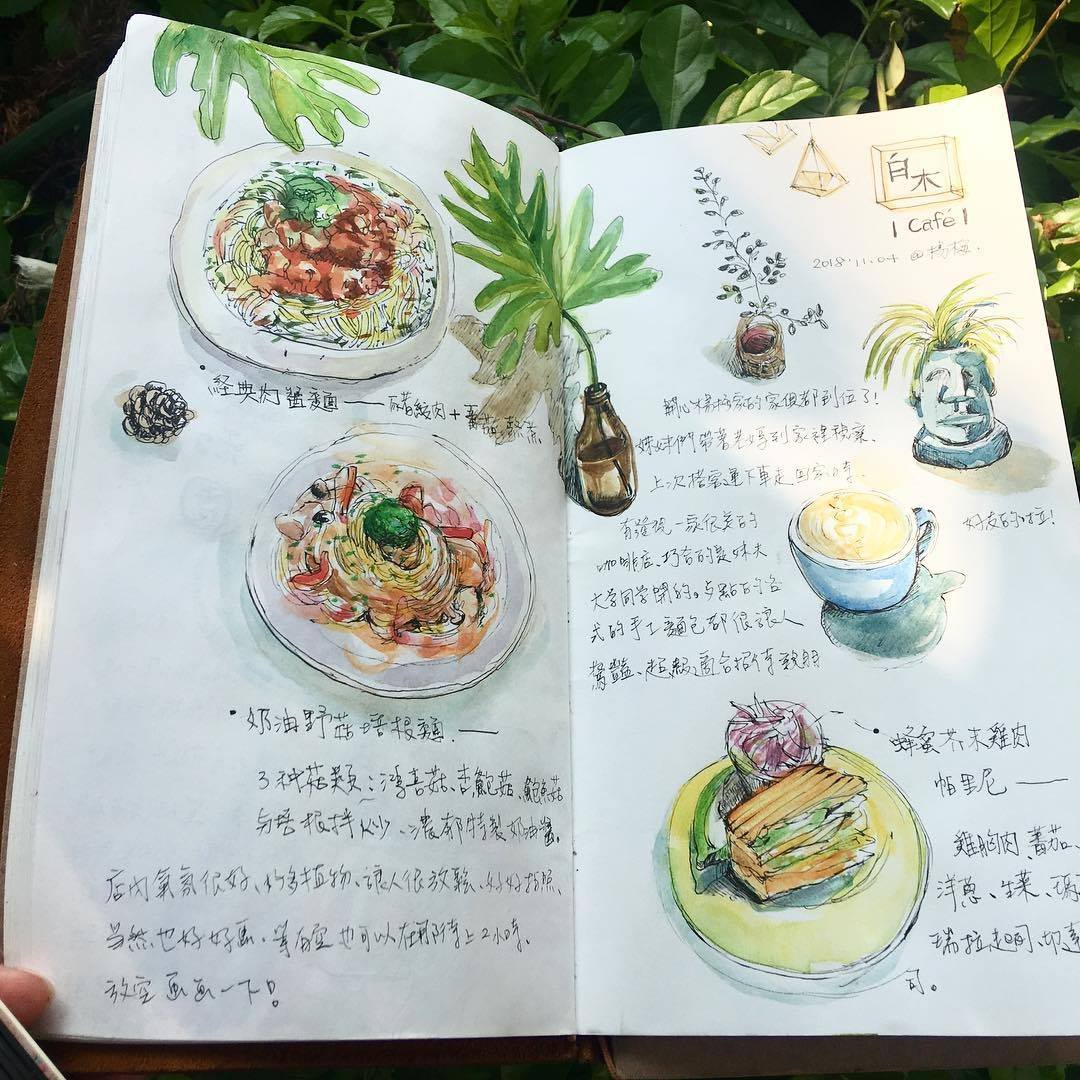 • 經典肉醬麵 — 豬絞肉 + 蕃茄
• 奶油野菇培根麵. —
3 种菇類：鴻喜菇、杏鮑菇、鮑魚菇
与培根拌炒、濃郁特製奶油醬。
店内氣氛很好、許多植物、讓人很放鬆、好好拍照、
当然也好好、等 也可以在那待上 2 小時、
放空畫畫一下！
白木
| Café |
2018.11.04 @楊梅.
楊梅家的家俱都到位了！
姊妹們帶著老媽到家裡視察、
上次搭 運下車走回家時、
有 一家很美的
咖啡店、巧合的是妹夫
大学同学開的。点點的各
式的手工麵包都很讓人
驚豔、超級適合招待親朋
好友的啦！
• 蜂蜜芥末雞肉
帕里尼 —
雞胸肉、蕃茄、
洋蔥、生菜、瑪
瑞拉起司、切達
司。